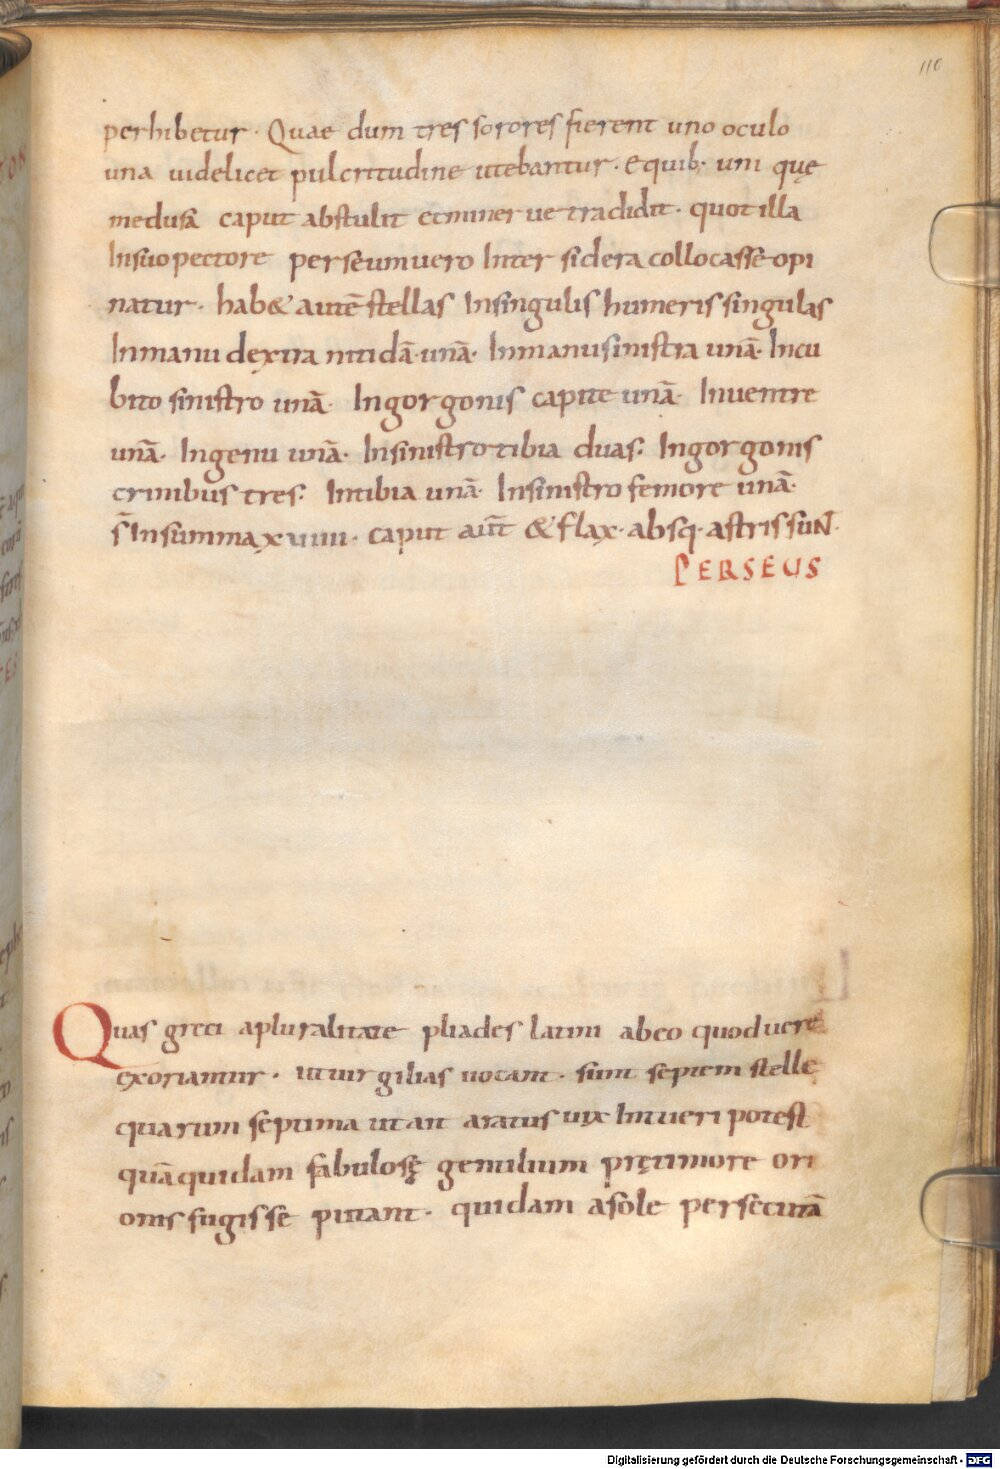 110
perhibetur · Quae dum tres sorores fierent uno oculo
una uidelicet pulcritudine utebantur · Equib; uni quę
medusā caput abstulit et minerue tradidit · quot illa
In suo pectore perseum uero Inter sidera collocasse opi
natur · hab& autē stellas In singulis humeris singulas
In manu dextra nitidā · unā · In manu sinistra unā · In cu
bito sinistro unā · In gorgonis capite unā · In uentre
unā · In genu unā · In sinistro tibia duas : In gorgonis
crinibus tres : In tibia unā · In sinistro femore unā ·
s̄ In summa xuiiii · caput aut̄ & flax · absq · astris sunt ·
PERSEUS
Quas greci a pluralitate pliades latini ab eo quod uere
exoriantur · ut uirgilias uocant · sunt septem stelle
quarum septima ut ait aratus uix Intueri potest
quā quidam fabulosę gentilium prę timore ori
onis fugisse putant · quidam a sole persecutā
Digitalisierung gefördert durch die Deutsche Forschungsgemeinschaft - DFG